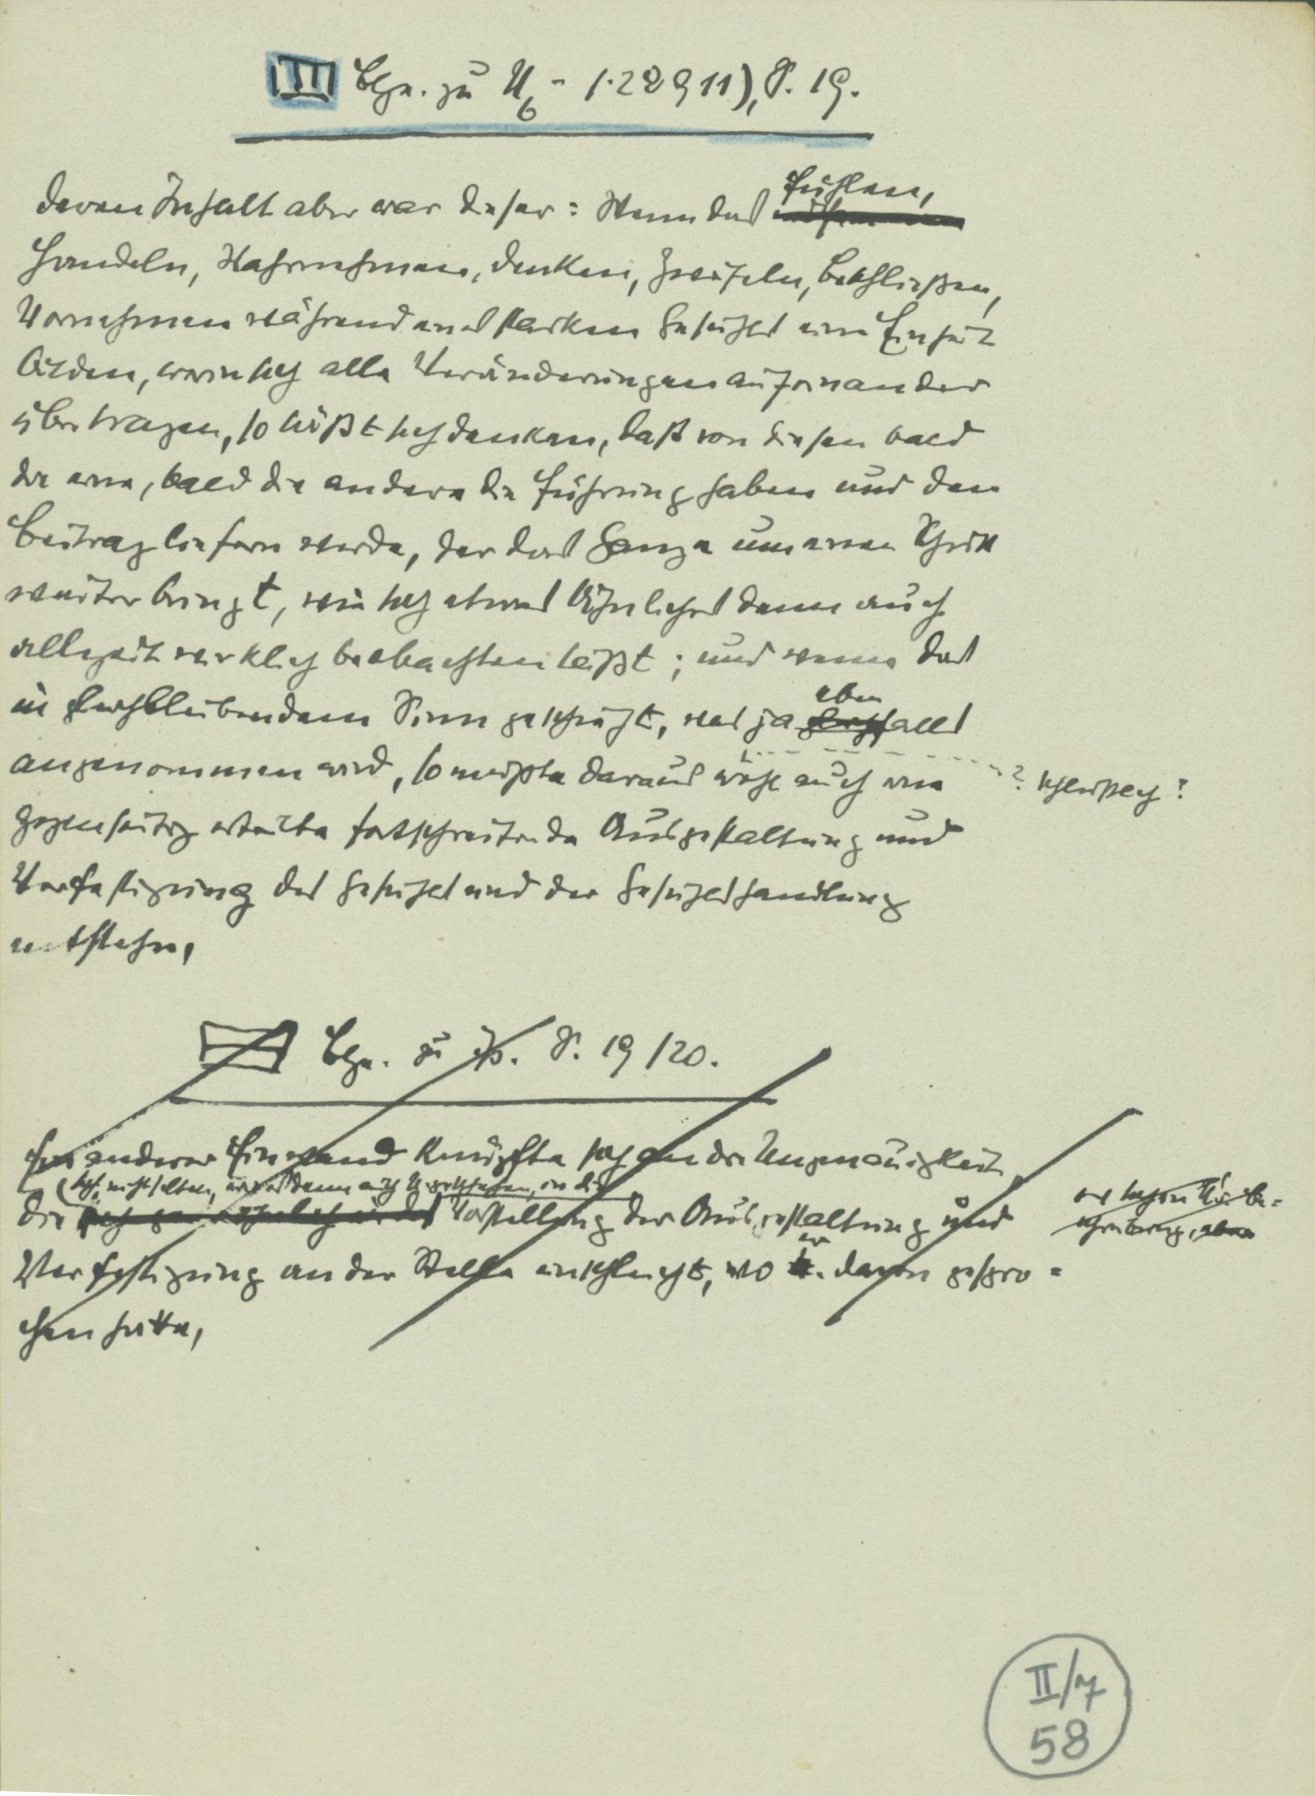 III Blge. zu U6 - (. 22 9 11), S. 19.
Deren Inhalt aber war dieser: Wenn das Fühlen,
Handeln, Wahrnehmen, Denken, Zweifeln, Beschließen,
Vornehmen während eines starken Gefühls eine Einheit
bilden, worin sich alle Veränderungen aufeinander
übertragen, so läßt sich denken, daß von diesen bald
die eine, bald die andere die Führung haben und den
Beitrag liefern werde, der das Ganze um einen Schritt
weiter bringt, wie sich etwas Ähnliches denn auch
allezeit wirklich beobachten läßt; und wenn das
eben
in gleichbleibendem Sinn geschieht, was ja falls
angenommen wird, so müßte daraus wohl auch eine ? schließlich?
gegenseitig erteilte fortschreitende Ausgestaltung und
Verfestigung des Gefühls und der Gefühlshandlung
entstehn,
Blge. zu S. 19/20.
Ein anderer Einwand knüpfte sich an die Ungenauigkeit,
die sich nicht selten, in die
Vorstellung der Ausgestaltung und
Verfestigung an der Stelle einschleicht, wo er davon gespro=
chen hatte,
II/7
58